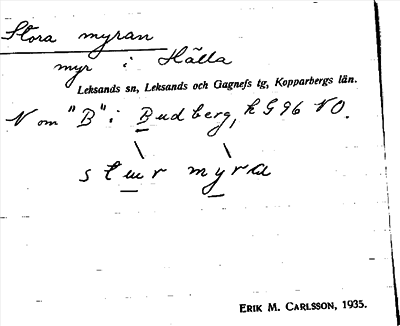 Stora myran
myr i Hälla
Leksands sn, Leksands och Gagnefs tg, Kopparbergs län.
N om "B" i Budberg, k G 96 NO.
stɯr myra
ERIK M. CARLSSON, 1935.